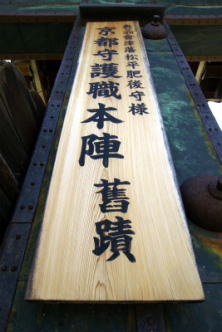 奥州會津藩松平肥後守様
京都守護職本陣舊蹟